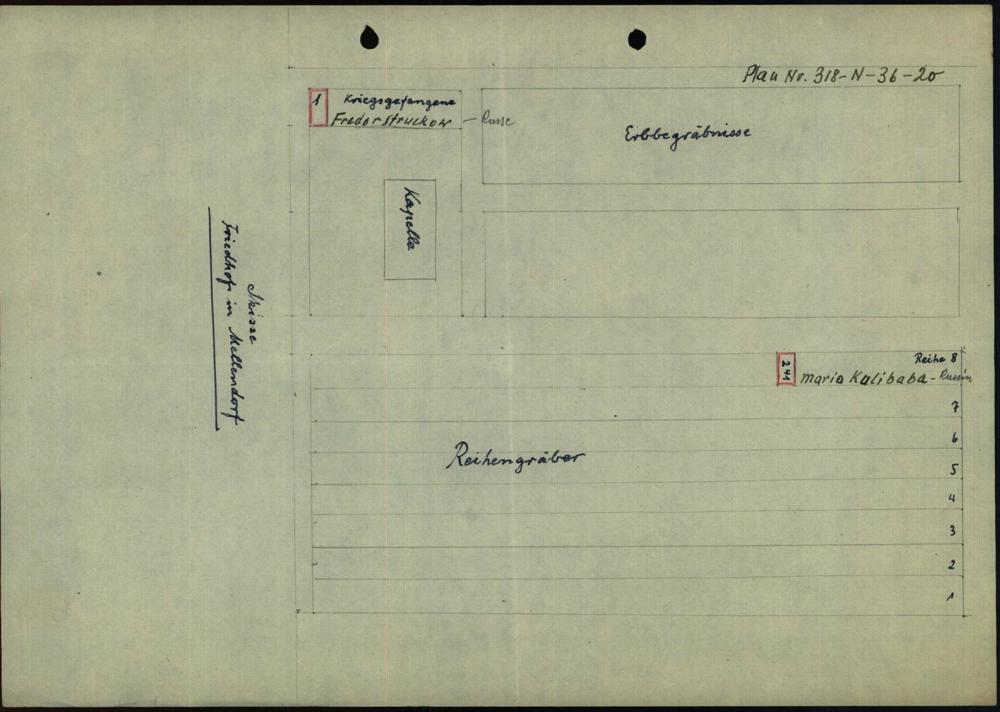 Plan Nr. 318-N-36-20
1 Kriegsgefangene
Fredor Struckow - Russe
Erbbegräbnisse
Kapelle
Skizze
Friedhof in Mellendorf
Reihe 8
241 Maria Kalibaba - Russin
7
6
Reihengräber
5
4
3
2
1